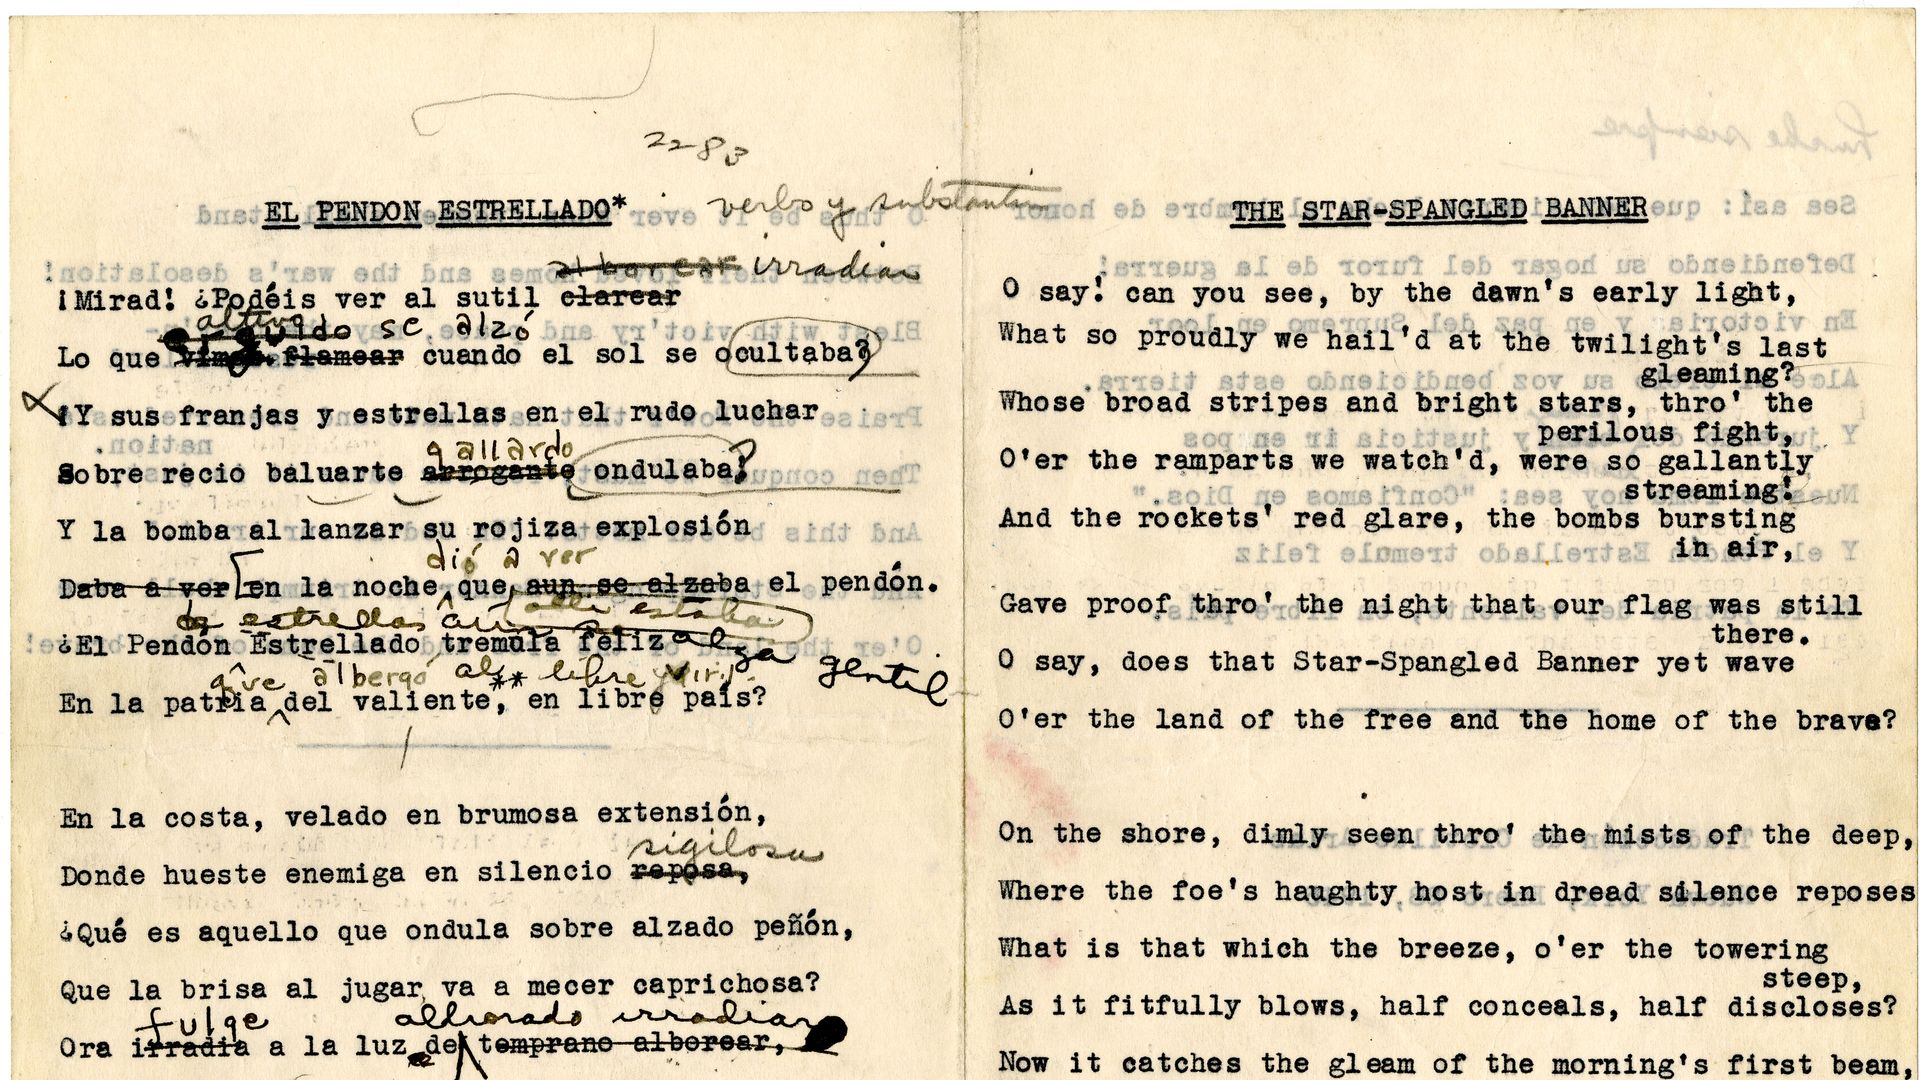 2283
EL PENDON ESTRELLADO*
verbo y
irradiar
¡Mirad! ¿Podéis ver al sutil clarear
altivo
erguido se alzó
Lo que vimos flamear cuando el sol se ocultaba?
¡Y sus franjas y estrellas en el rudo luchar
gallardo
Sobre recio baluarte arrogante ondulaba?
Y la bomba al lanzar su rojiza explosión
dió a ver
Daba a ver en la noche que aun se alzaba el pendón.
de estrellas aun allí estaba
¿El Pendón Estrellado tremula feliz
gentil
que albergó al libre
En la patria del valiente,** en libre país?
En la costa, velado en brumosa extensión,
sigilosa
Donde hueste enemiga en silencio reposa,
¿Qué es aquello que ondula sobre alzado peñón,
Que la brisa al jugar va a mecer caprichosa?
fulge alborado irradiar
Ora irradia a la luz de temprano alborear,
THE STAR-SPANGLED BANNER
O say! can you see, by the dawn's early light,
What so proudly we hail'd at the twilight's last
gleaming?
Whose broad stripes and bright stars, thro' the
perilous fight,
O'er the ramparts we watch'd, were so gallantly
streaming!
And the rockets' red glare, the bombs bursting
in air,
Gave proof thro' the night that our flag was still
there.
O say, does that Star-Spangled Banner yet wave
O'er the land of the free and the home of the brave?
On the shore, dimly seen thro' the mists of the deep,
Where the foe's haughty host in dread silence reposes
What is that which the breeze, o'er the towering
steep,
As it fitfully blows, half conceals, half discloses?
Now it catches the gleam of the morning's first beam,